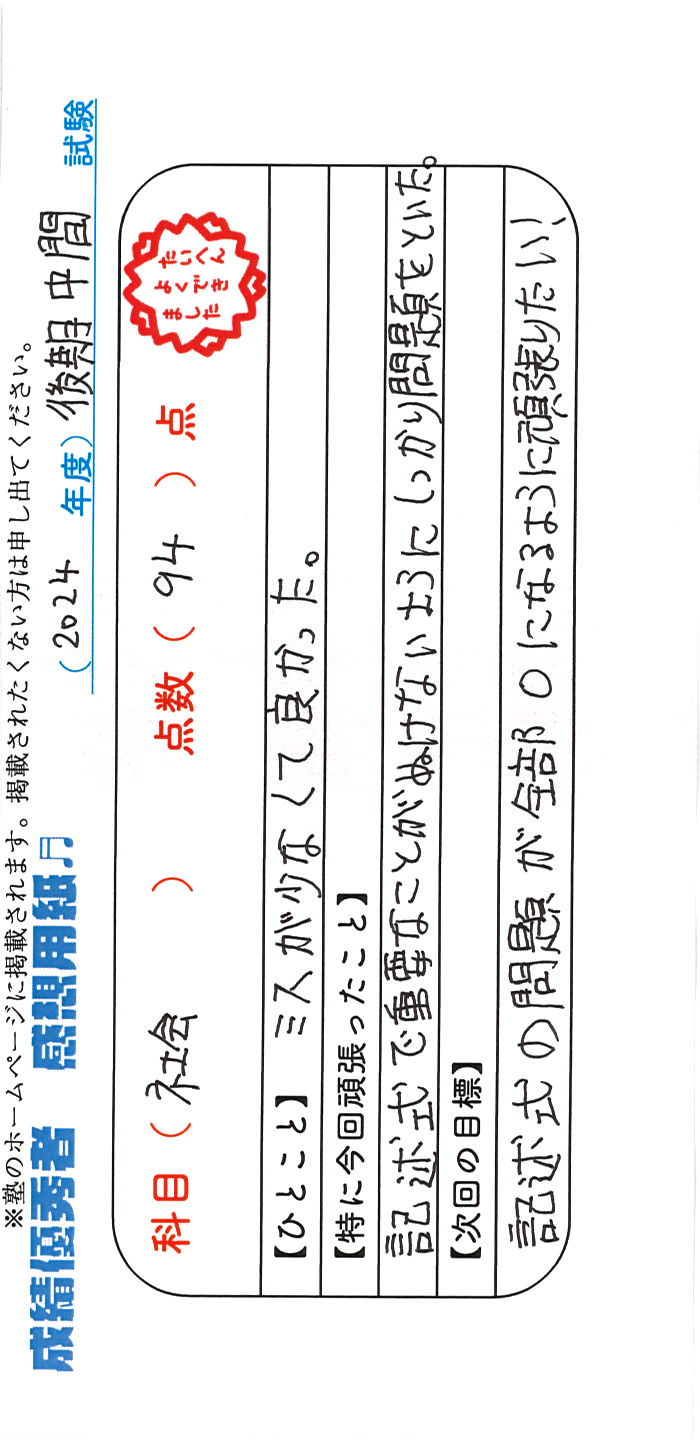 ※塾のホームページに掲載されます。掲載されたくない方は申し出てください。
成績優秀者 感想用紙♬ (2024 年度) 後期中間 試験
科目(社会) 点数(94)点
たいへん
よくでき
ました
【ひとこと】 ミスが少なくて良かった。
【特に今回頑張ったこと】
記述式で重要なことがぬけないようにしっかり問題をといた。
【次回の目標】
記述式の問題が全部〇になるように頑張りたい!